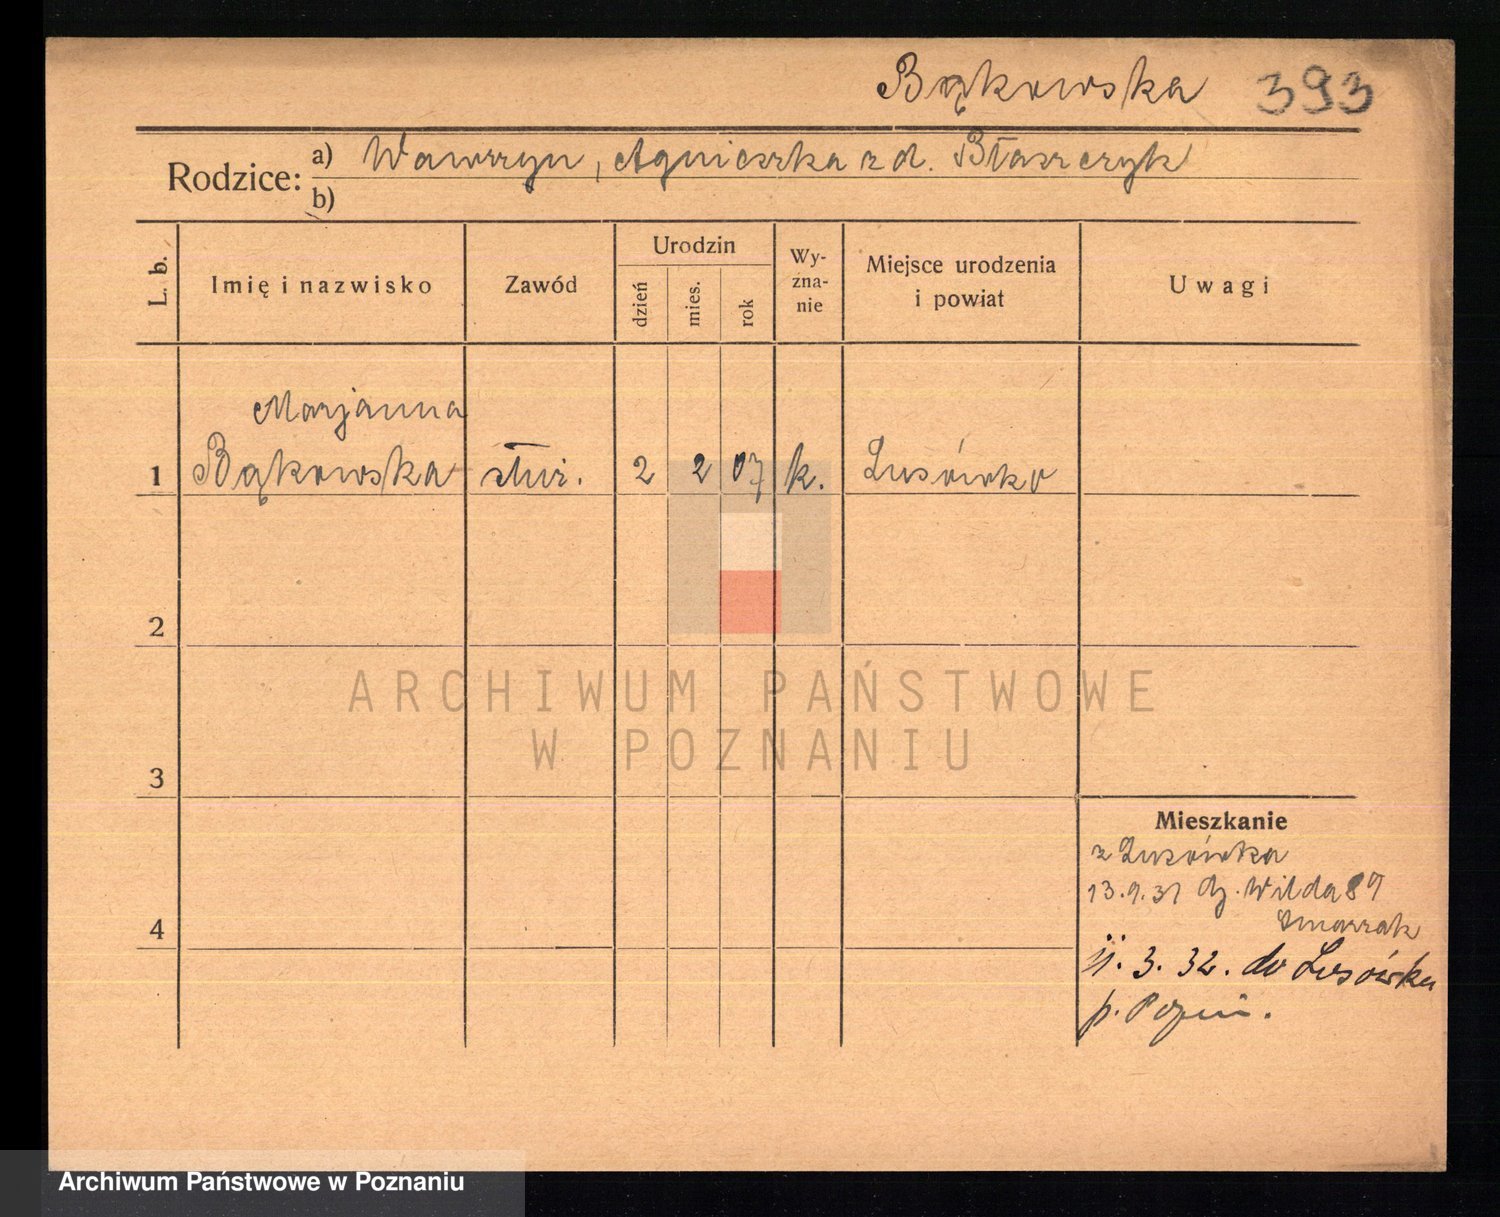 Bąkowska 393
Rodzice: a) Wawrzyn, Agnieszka z d. Błaszczyk
b)
L. b.
Imię i nazwisko
Zawód
Urodzin
dzień
mies.
rok
Wy-
zna-
nie
Miejsce urodzenia
i powiat
Uwagi
Marjanna
1 Bąkowska służ. 2 2 07 k. Lusówko
2
3
4
Mieszkanie
z Lusówka
13.9.31 Dz. Wilda 89
11. 3. 32. do Lusówka
p. Pozn.
ARCHIWUM PAŃSTWOWE
W POZNANIU
Archiwum Państwowe w Poznaniu